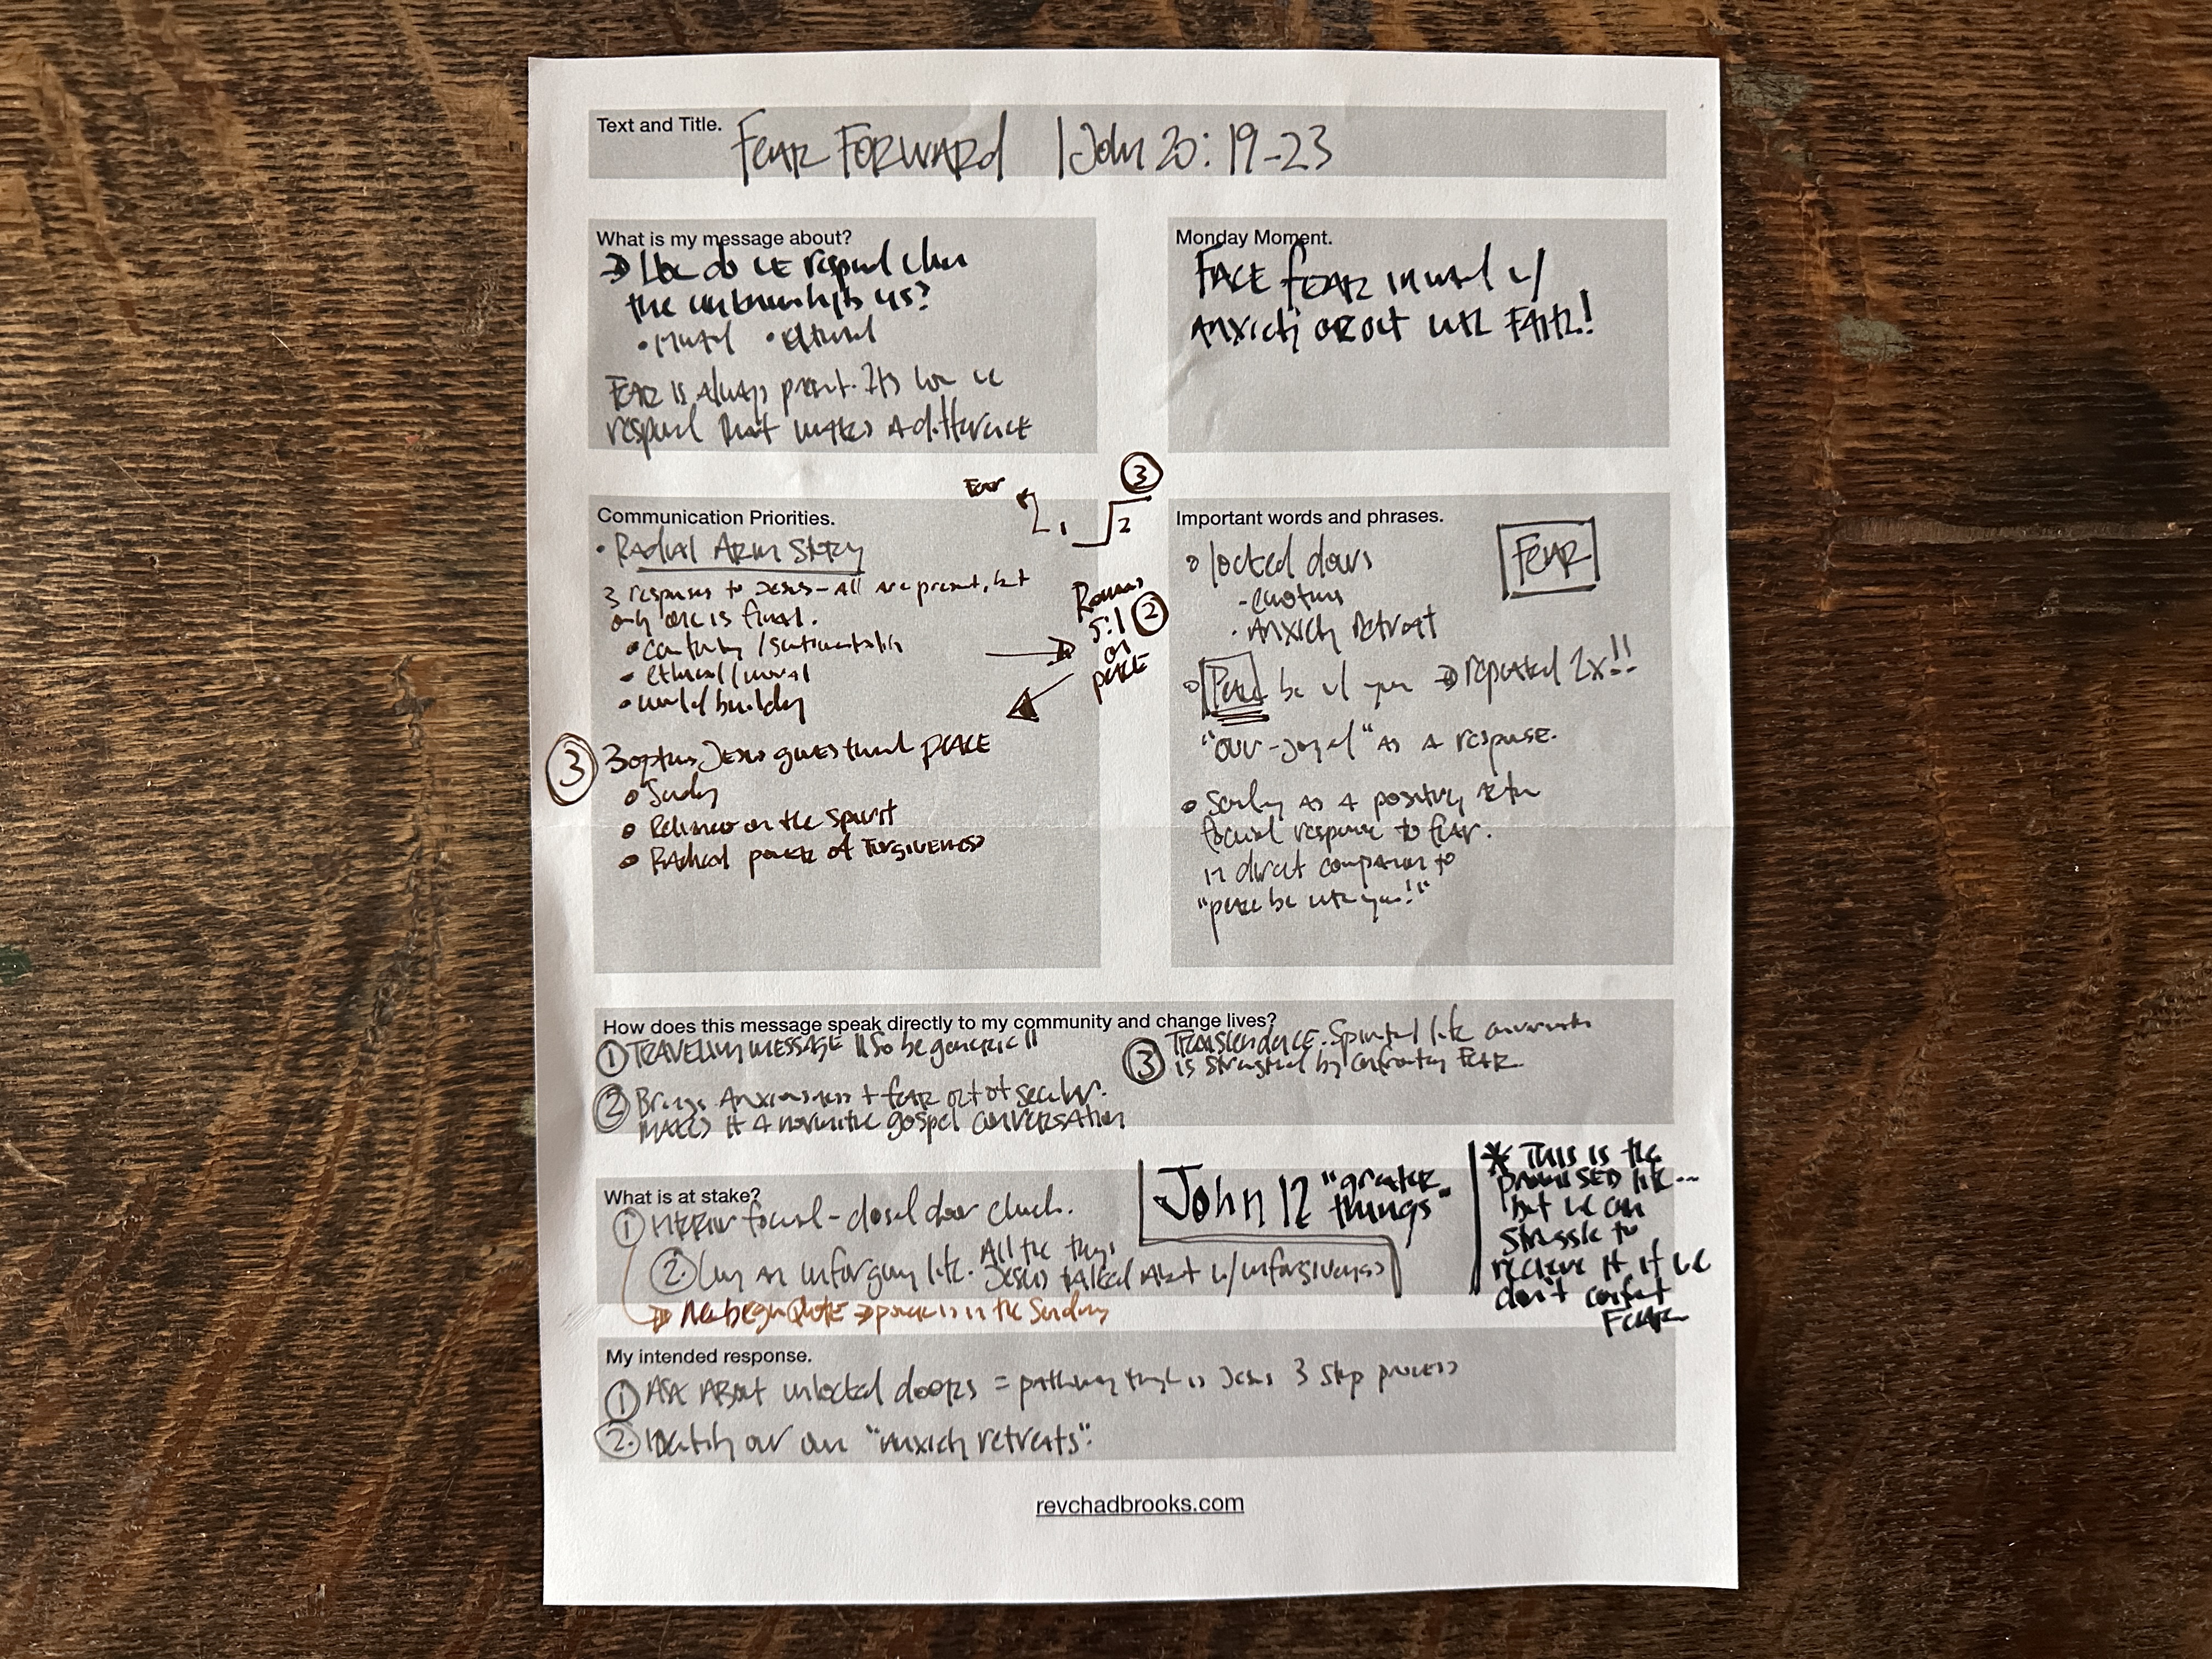 Text and Title.
FEAR FORWARD | John 20: 19-23
What is my message about?
How do we respond when
the unknown hits us?
• • external
FEAR is always present. Its how we
respond that makes a difference
Monday Moment.
FACE fEAR inward w/
Anxiety or out with FAith!
Fear
1 2
3
Communication Priorities.
• Radial Arm Story
3 responses to Jesus - all are present, but
only one is final.
• /sentimentality
• ethical/moral
• world building
Romans
5:1 2
on
peace
3 3 options Jesus gives PEACE
Sending
Reliance on the Spirit
Radical power of Forgiveness
Important words and phrases.
FEAR
locked doors
- emotions
• Anxiety Retreat
Peace be w/ you repeated 2x!!
"over-joyed" as a response.
Sending as a positive, action
focused response to fear.
in direct comparison to
"peace be with you!"
How does this message speak directly to my community and change lives?
1 TRAVELING MESSAGE || So be generic ||
2 Brings Anxiousness + fear out of secular.
makes it a normative gospel conversation
3 TRANSCENDENCE. Spirited life
is strengthened by confronting FEAR.
What is at stake?
1 interior focused - closed door church.
2. Living an unforgiving life. All the things
Jesus talked about w/ unforgiveness
John 12 "greater
things"
* This is the
PROMISED life...
but we can
struggle to
recieve it if we
don't confront
FEAR
Newbegin Quote power is in the Sending
My intended response.
1 Ask About unlocked doors = pathway through is Jesus 3 step process
2. Identify our own "anxiety retreats".
revchadbrooks.com